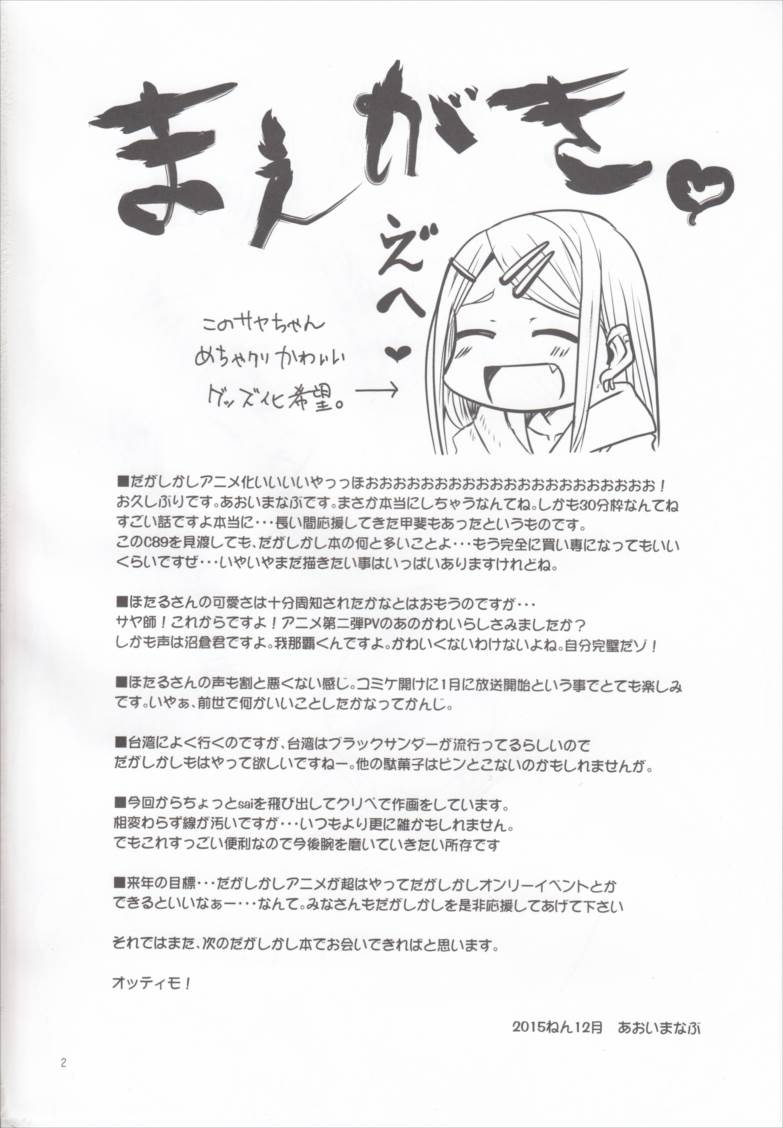 まえがき。
えへ
このサヤちゃん
めちゃクソかわいい
グッズ化希望。
■だがしかしアニメ化いいいいやっっほおおおおおおおおおおおおおおおおおおおおお！
お久しぶりです。あおいまなぶです。まさか本当にしちゃうなんてね。しかも30分枠なんてね
すごい話ですよ本当に・・・長い間応援してきた甲斐もあったというものです。
このC89を見渡しても、だがしかし本の何と多いことよ・・・もう完全に買い専になってもいい
くらいですぜ・・・いやいやまだ描きたい事はいっぱいありますけれどね。
■ほたるさんの可愛さは十分周知されたかなとはおもうのですが・・・
サヤ師！これからですよ！アニメ第二弾PVのあのかわいらしさみましたか？
しかも声は沼倉君ですよ。我那覇くんですよ。かわいくないわけないよね。自分完璧だゾ！
■ほたるさんの声も割と悪くない感じ。コミケ開けに1月に放送開始という事でとても楽しみ
です。いやぁ、前世で何かいいことしたかなってかんじ。
■台湾によく行くのですが、台湾はブラックサンダーが流行ってるらしいので
だがしかしもはやって欲しいですねー。他の駄菓子はピンとこないのかもしれませんが。
■今回からちょっとsaiを飛び出してクリペで作画をしています。
相変わらず線が汚いですが・・・いつもより更に雑かもしれません。
でもこれすっごい便利なので今後腕を磨いていきたい所存です
■来年の目標・・・だがしかしアニメが超はやってだがしかしオンリーイベントとか
できるといいなぁー・・・なんて。みなさんもだがしかしを是非応援してあげて下さい
それではまた、次のだがしかし本でお会いできればと思います。
オッティモ！
2015ねん12月　あおいまなぶ
2